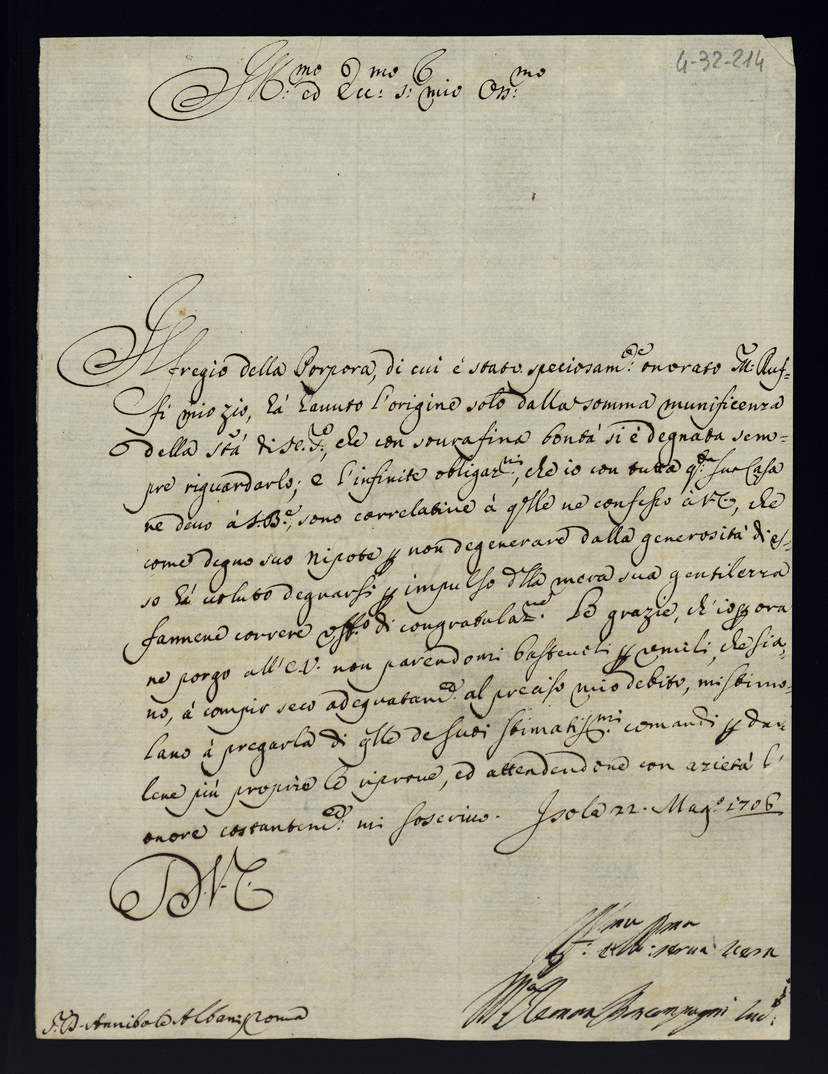 4-32-214
Ill:mo ed Ecc:mo S: mio Oss:mo
Il fregio della Porpora, di cui è stato speciosam:e onorato M:r Ruf=
fi mio zio, hà hauuto l'origine solo dalla somma munificenza
della S.tà di N.S.e, che con sourafina bontà si è degnata sem=
pre riguardarlo; e l'infinite obligaz.ni, che io con tutta q.ta sua Casa
ne deuo à S.B.e, sono correlatiue à q.lle ne confesso à V.E., che
come degno suo Nipote p non degenerare dalla generosità di es=
so hà uoluto degnarsi p impulso d'lla mera sua gentilezza
farmene correre off.o di congratulaz.ne. Le grazie, ch'io p ora
ne porgo all'E.V. non parendomi basteuoli p umili, che sia=
no, à compir seco adeguatam.e al preciso mio debito, mi stimo=
lano à pregarla di q.lle de suoi stimatiss.mi comandi p dar=
lene più proprie le riproue, ed attendendone con azietà l'
onore costantem.e mi soscriuo. Isola 22. Mag.o 1706
D V.E.
Diu.ma Obl.ma
serua uera
M.a Eleonora Boncompagni Lud.i
S.r D. Annibale Albani Roma